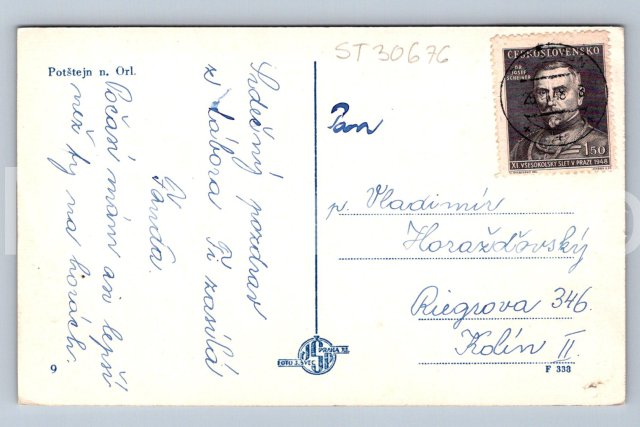 ST 30676
Potštejn n. Orl.
Srdečný pozdrav
z tábora Ti zasílá
V. Fanda.
Počasí mám asi lepší
než ty na horách.
Pan
p. Vladimír
Horažďovský
Riegrova 346.
Kolín II.
ČESKOSLOVENSKO
DR JOSEF SCHEINER
1.50
XI. VŠESOKOLSKÝ SLET V PRAZE 1948
FOTO J. ŠVEC PRAHA XI.
9
F 338